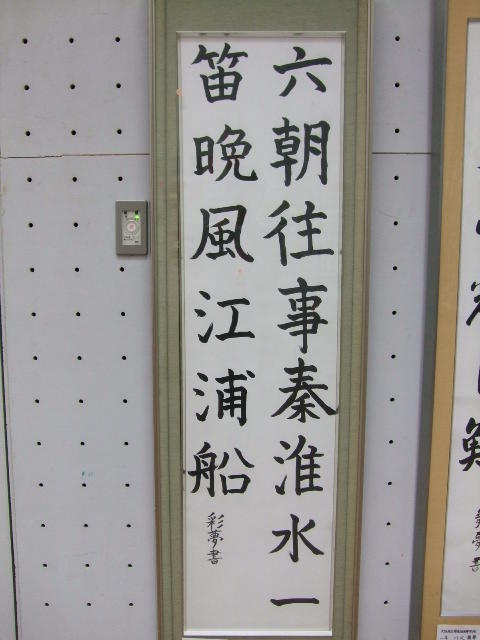 六朝往事秦淮水一
笛晩風江浦船
彩夢書